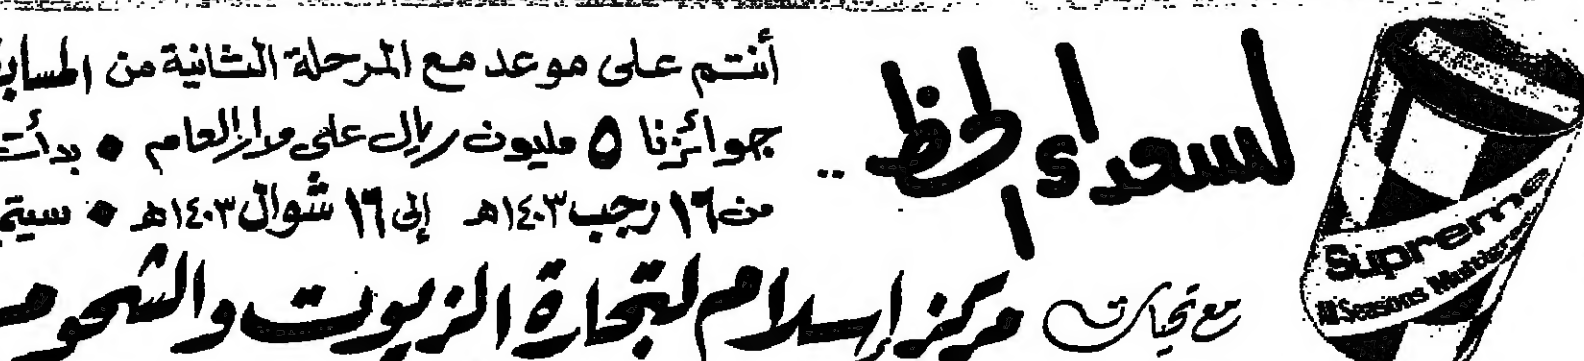 لسعداء الحظ ..
أنتم على موعد مع المرحلة الثانية من
جوائزنا ٥ مليون ريال على مدار العام • بدأت
من ١٦ رجب ١٤٠٣هـ إلى ١٦ شوال ١٤٠٣هـ • سيتم
مع تحيات مركز إسلام لتجارة الزيوت والشحوم
Supreme
All Seasons